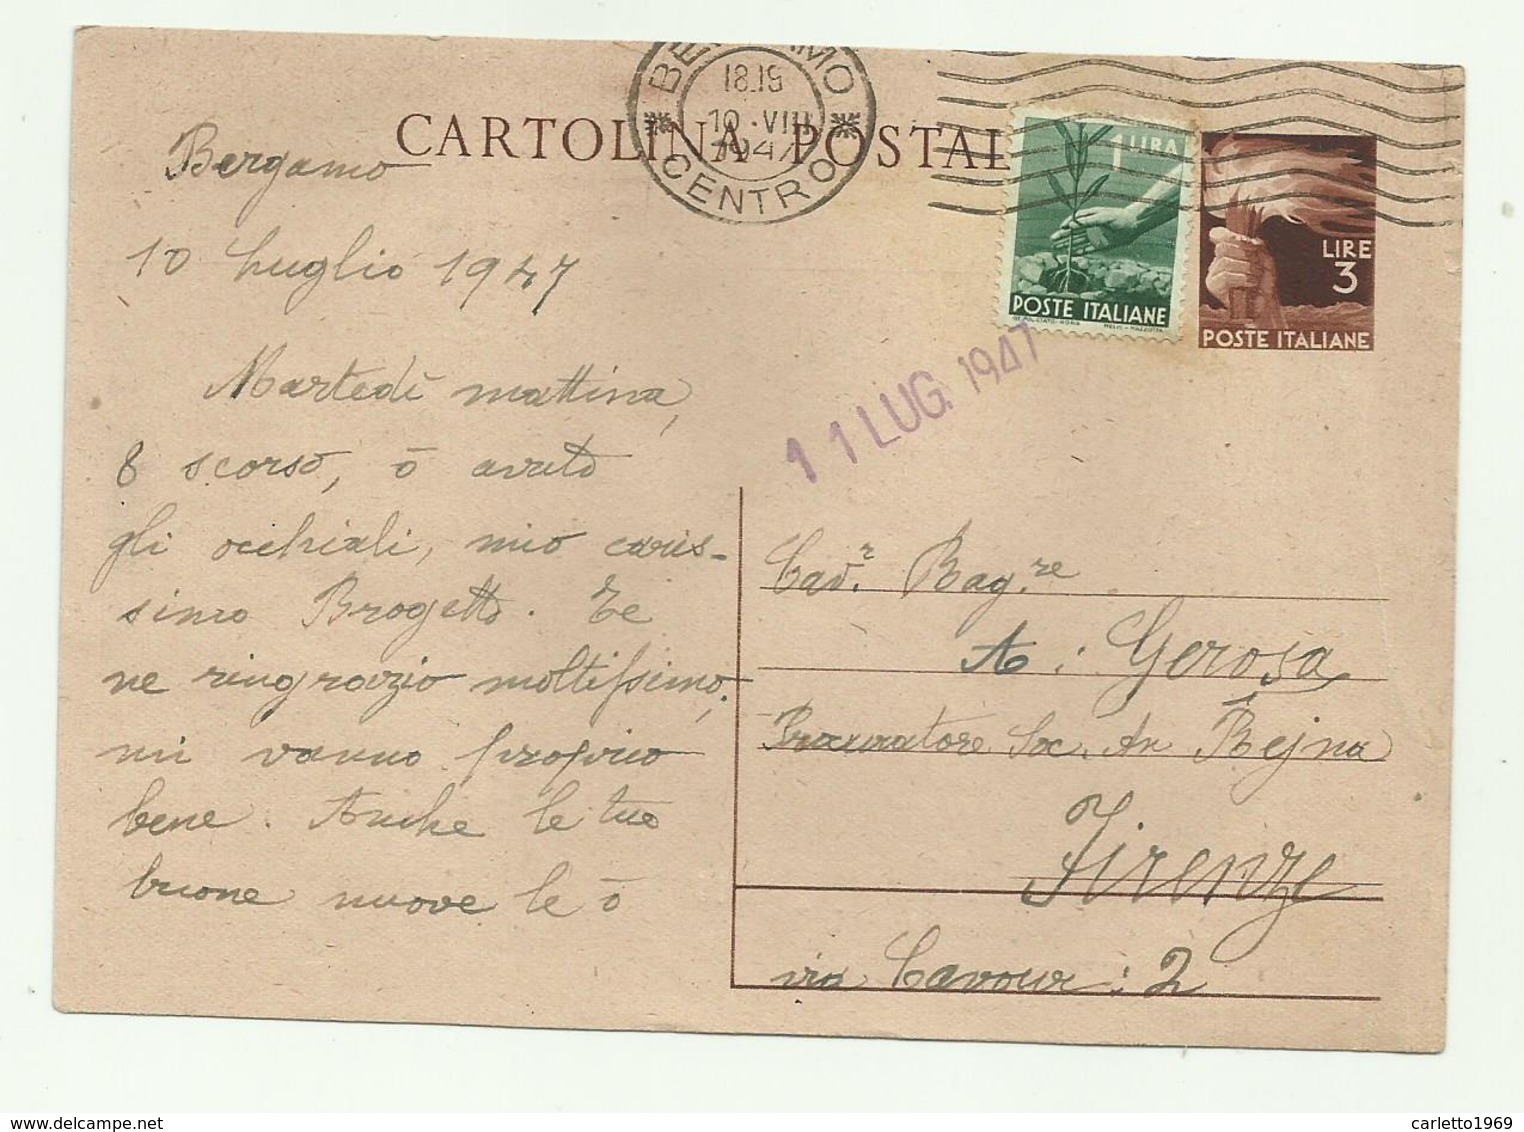 CARTOLINA POSTAL
BE MO
CENTRO
18.19
10 · VII
1947
1 LIRA
POSTE ITALIANE
LIRE
3
POSTE ITALIANE
11 LUG. 1947
Bergamo
10 Luglio 1947
Martedì mattina,
8 scorso, ò avuto
gli occhiali, mio caris-
simo Brogetto. Te
ne ringrazio moltissimo,
mi vanno proprio
bene. Anche le tue
buone nuove le ò
Cav.r Rag.re
A: Gerosa
Procuratore Soc. An. Bejna
Firenze
via Cavour: 2
delcampe.net
carletto1969